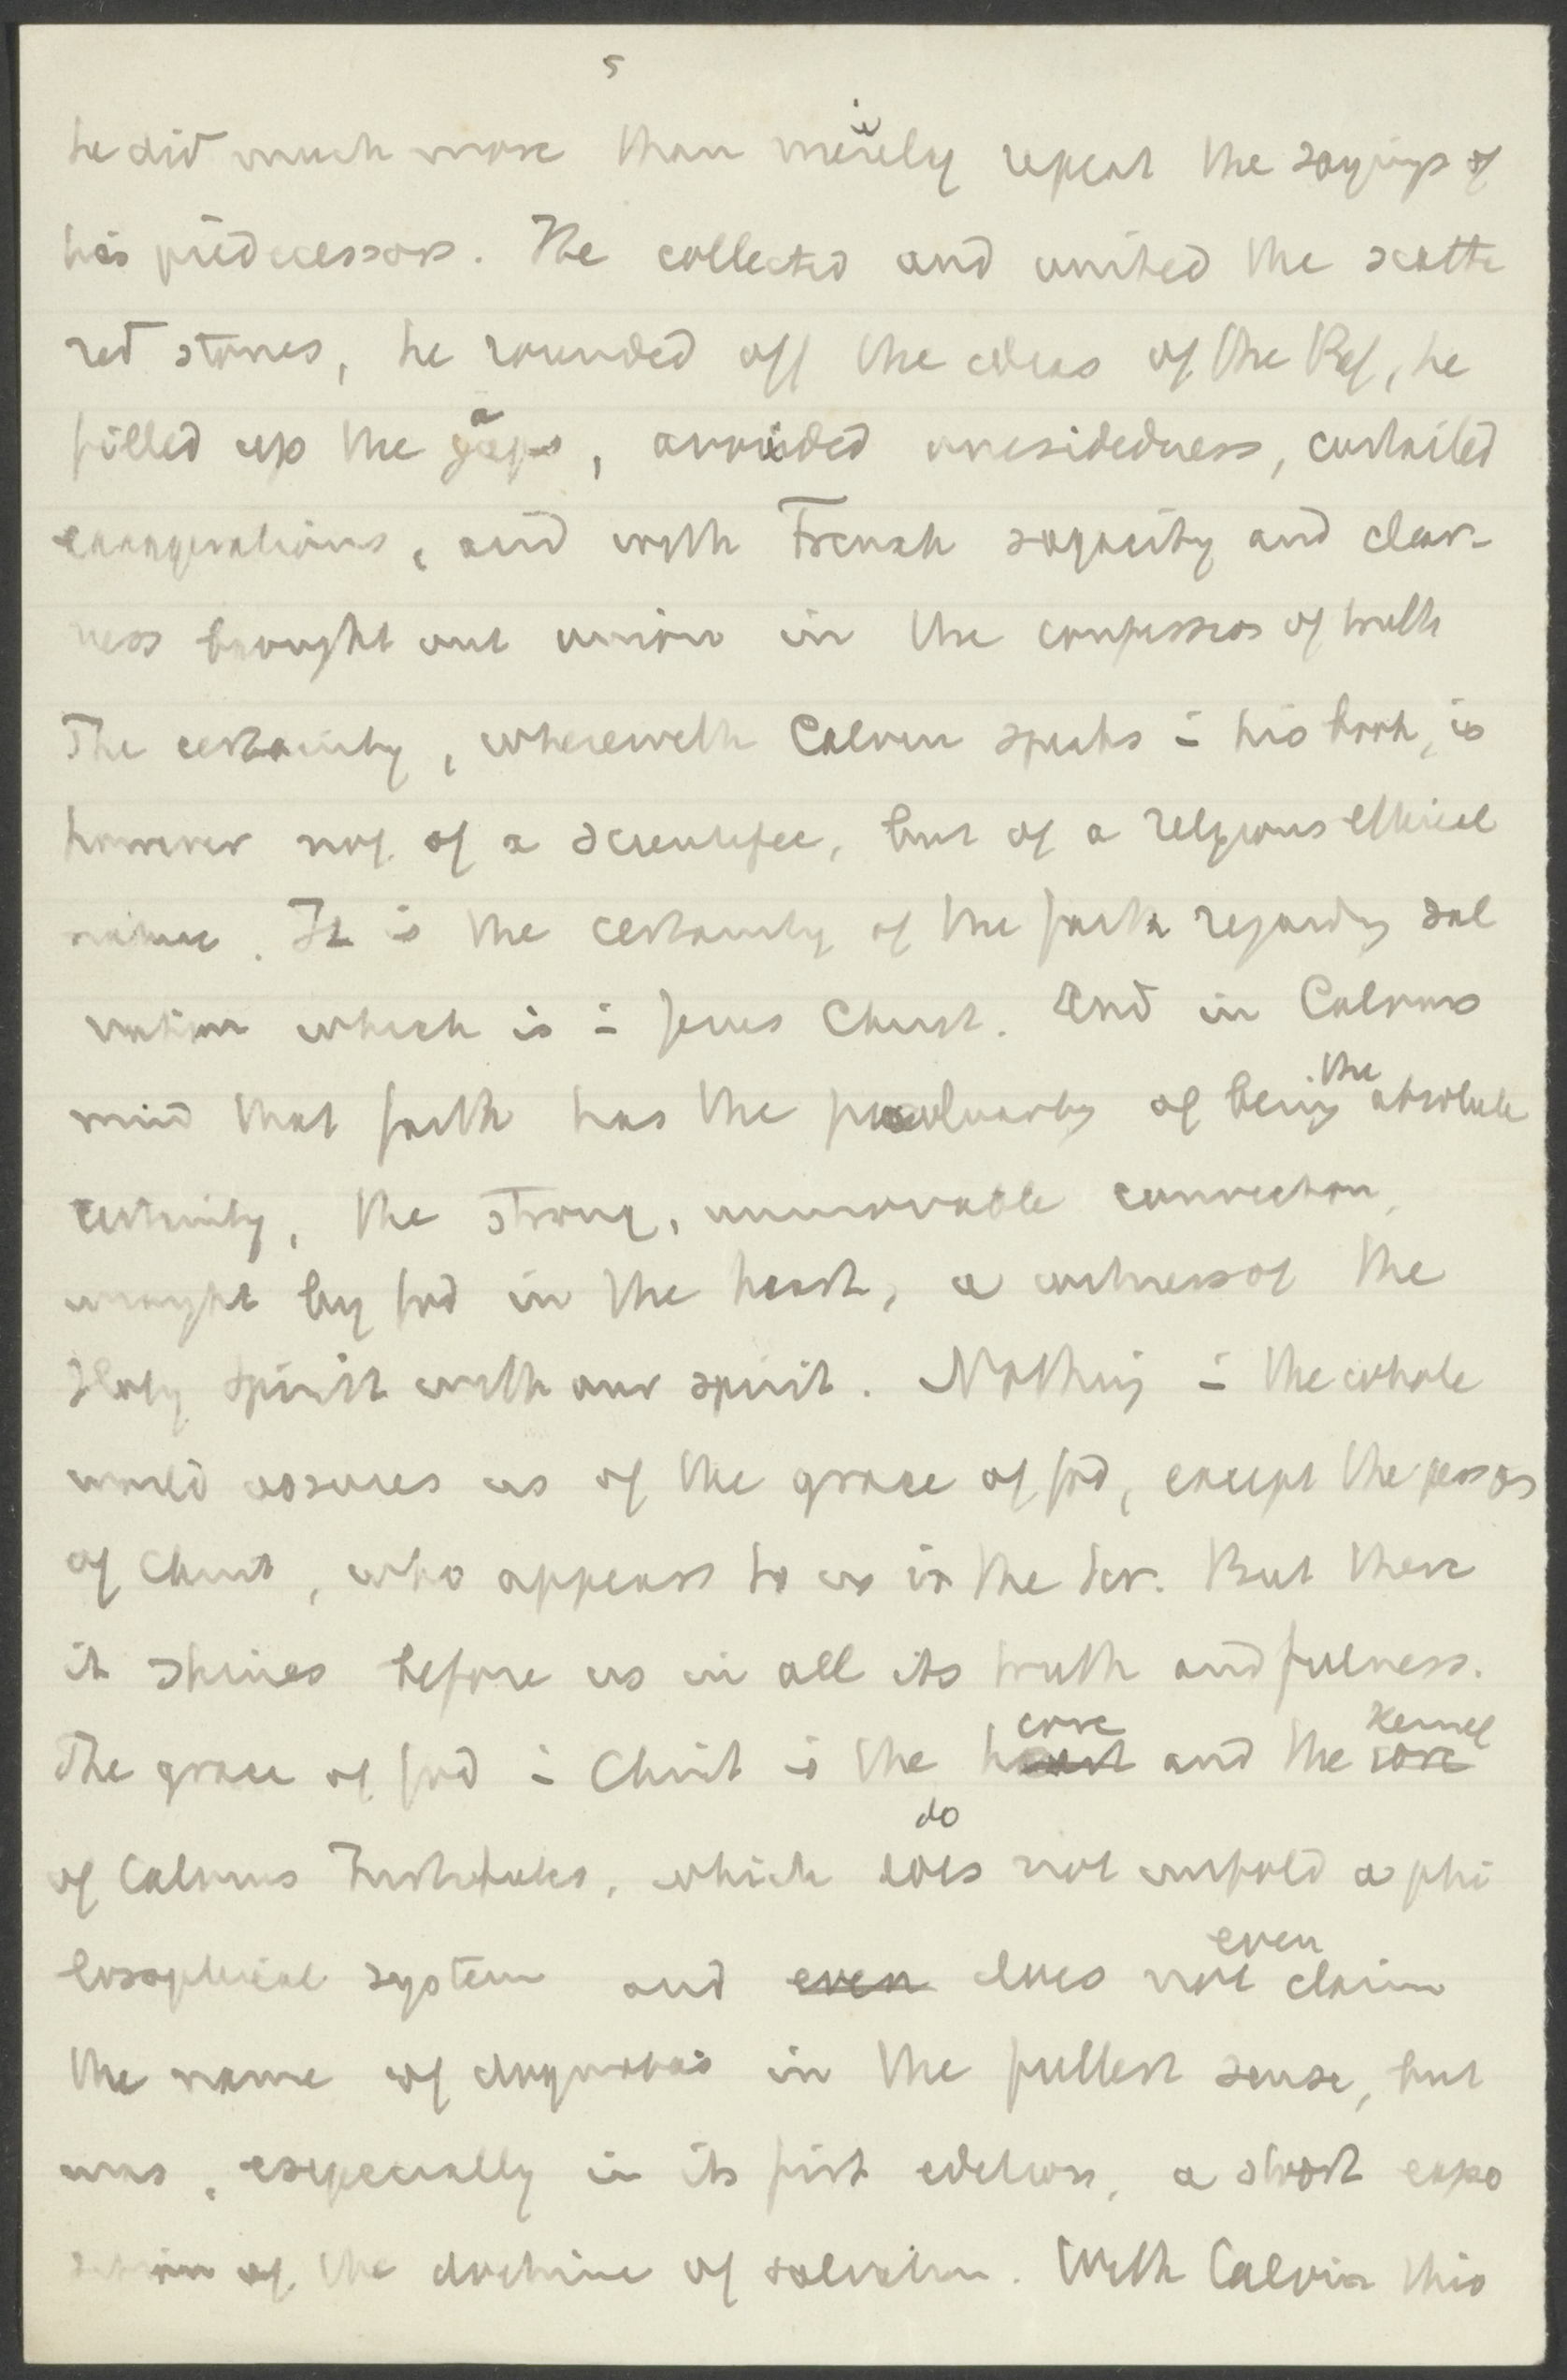 5
he did much more than merely repeat the sayings of
his predecessors. He collected and united the scatte
red stones, he rounded off the ideas of the Ref, he
filled up the gaps, avoided onesidedness, curtailed
exaggerations, and with French sagacity and clear-
ness brought out union in the confession of truth
The certainty, wherewith Calvin speaks in his book, is
however not of a scientific, but of a religious ethical
nature. It is the certainty of the faith regarding sal
vation which is in Jesus Christ. And in Calvins
mind that faith has the peculiarity of being the absolute
certainty, the strong, unmovable conviction,
wrought by God in the heart, a witness of the
Holy Spirit with our spirit. Nothing in the whole
world assures us of the grace of God, except the person
of Christ, who appears to us in the Scr. But there
it shines before us in all its truth and fulness.
The grace of God in Christ is the heart core and the core kernel
of Calvins Institutes, which does do not unfold a phi
losophical system and even does not even claim
the name of dogmatics in the fullest sense, but
was, especially in its first edition, a short expo
sition of the doctrine of salvation. With Calvin this